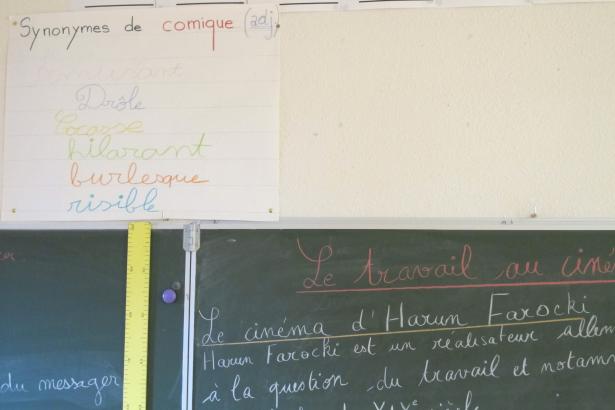 Synonymes de comique (adj
Drôle
Cocasse
hilarant
burlesque
risible
du messager
Le travail au ciné
Le cinéma d'Harun Farocki
Harun Farocki est un réalisateur allem
à la question du travail et notam